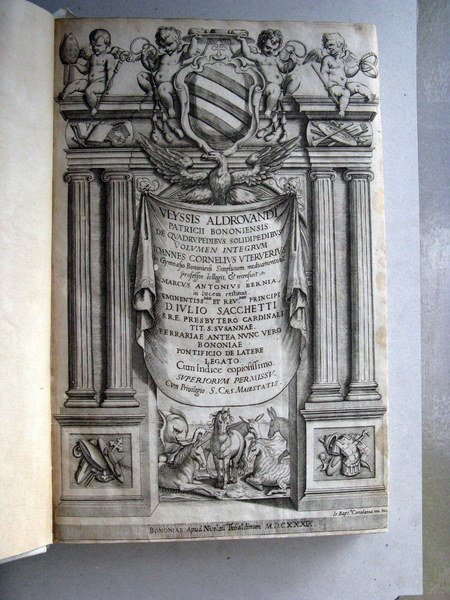 VLYSSIS ALDROVANDI
PATRICII BONONIENSIS
DE QVADRVPEDIBVS SOLIDIPEDIBVS
VOLVMEN INTEGRVM
IOANNES CORNELIVS VTERVERIVS
in Gymnasio Bononiensi Simplicium medicamentorum
professor collegit, & recensuit
MARCVS ANTONIVS BERNIA
in lucem restituit
EMINENTISS.MO ET REV.MO PRINCIPI
D. IVLIO SACCHETTI
S.R.E. PRESBYTERO CARDINALI
TIT. S. SVSANNAE.
FERRARIAE ANTEA NVNC VERO
BONONIAE
PONTIFICIO DE LATERE
LEGATO.
Cum Indice copiosissimo.
SVPERIORVM PERMISSV.
Cum Privilegio S. CAES MAIESTATIS
Io. Bapt.a Coriolanus
BONONIAE Apud Nicolaum Thebaldinum M.DC.XXXIX.